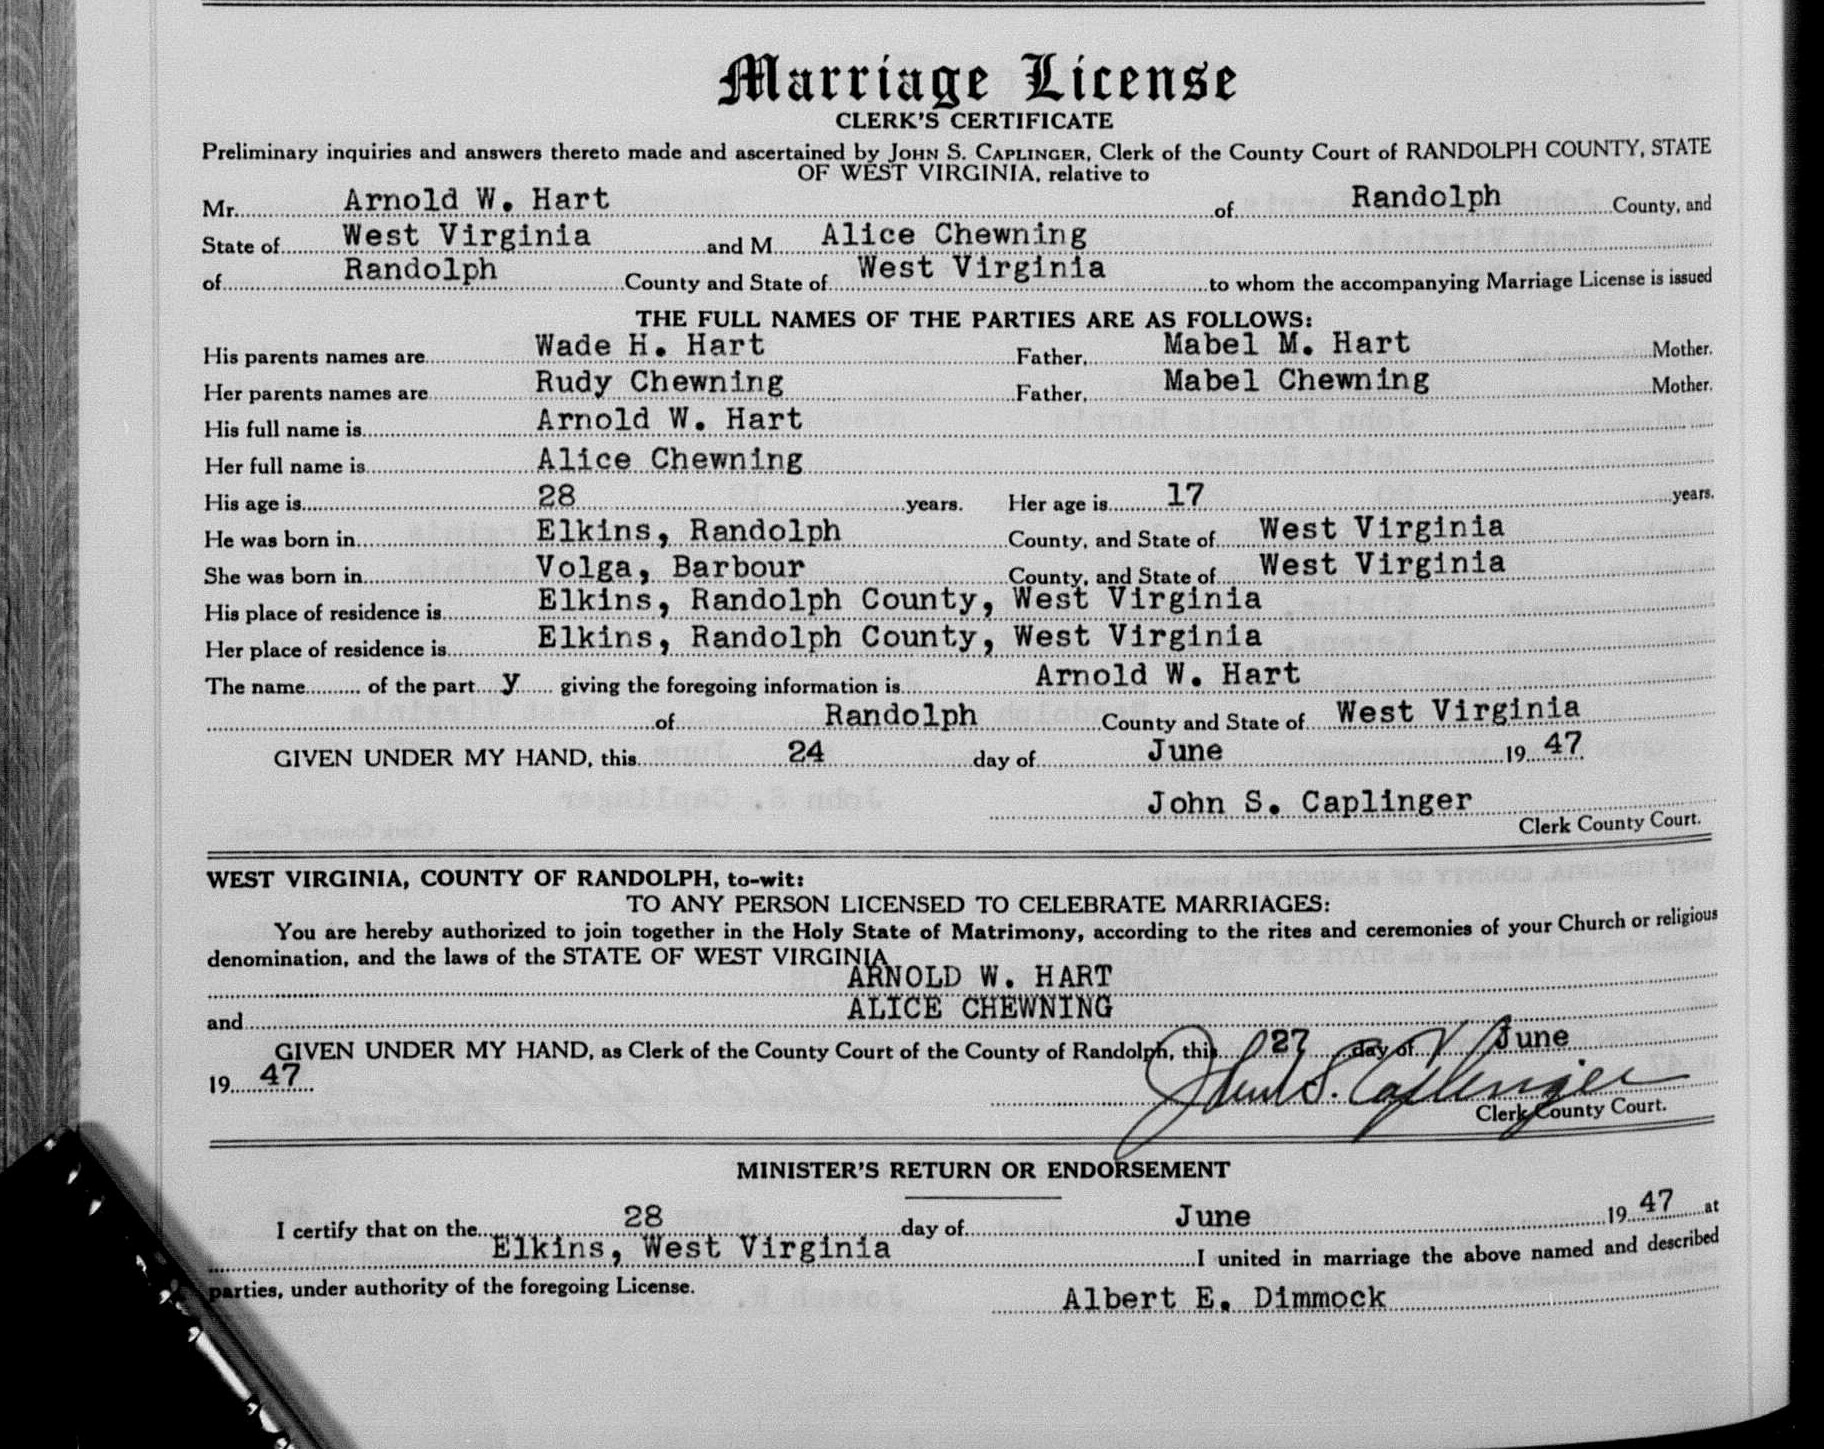 Marriage License
CLERK'S CERTIFICATE
Preliminary inquiries and answers thereto made and ascertained by JOHN S. CAPLINGER, Clerk of the County Court of RANDOLPH COUNTY, STATE
OF WEST VIRGINIA, relative to
Mr. Arnold W. Hart of Randolph County, and
State of West Virginia and M Alice Chewning
of Randolph County and State of West Virginia to whom the accompanying Marriage License is issued
THE FULL NAMES OF THE PARTIES ARE AS FOLLOWS:
His parents names are Wade H. Hart Father, Mabel M. Hart Mother.
Her parents names are Rudy Chewning Father, Mabel Chewning Mother.
His full name is Arnold W. Hart
Her full name is Alice Chewning
His age is 28 years. Her age is 17 years.
He was born in Elkins, Randolph County, and State of West Virginia
She was born in Volga, Barbour County, and State of West Virginia
His place of residence is Elkins, Randolph County, West Virginia
Her place of residence is Elkins, Randolph County, West Virginia
The name of the part y giving the foregoing information is Arnold W. Hart
of Randolph County and State of West Virginia
GIVEN UNDER MY HAND, this 24 day of June 19 47
John S. Caplinger
Clerk County Court.
WEST VIRGINIA, COUNTY OF RANDOLPH, to-wit:
TO ANY PERSON LICENSED TO CELEBRATE MARRIAGES:
You are hereby authorized to join together in the Holy State of Matrimony, according to the rites and ceremonies of your Church or religious
denomination, and the laws of the STATE OF WEST VIRGINIA
ARNOLD W. HART
and ALICE CHEWNING
GIVEN UNDER MY HAND, as Clerk of the County Court of the County of Randolph, this 27 day of June
19 47 John S. Caplinger
Clerk County Court.
MINISTER'S RETURN OR ENDORSEMENT
I certify that on the 28 day of June 19 47 at
Elkins, West Virginia I united in marriage the above named and described
parties, under authority of the foregoing License.
Albert E. Dimmock